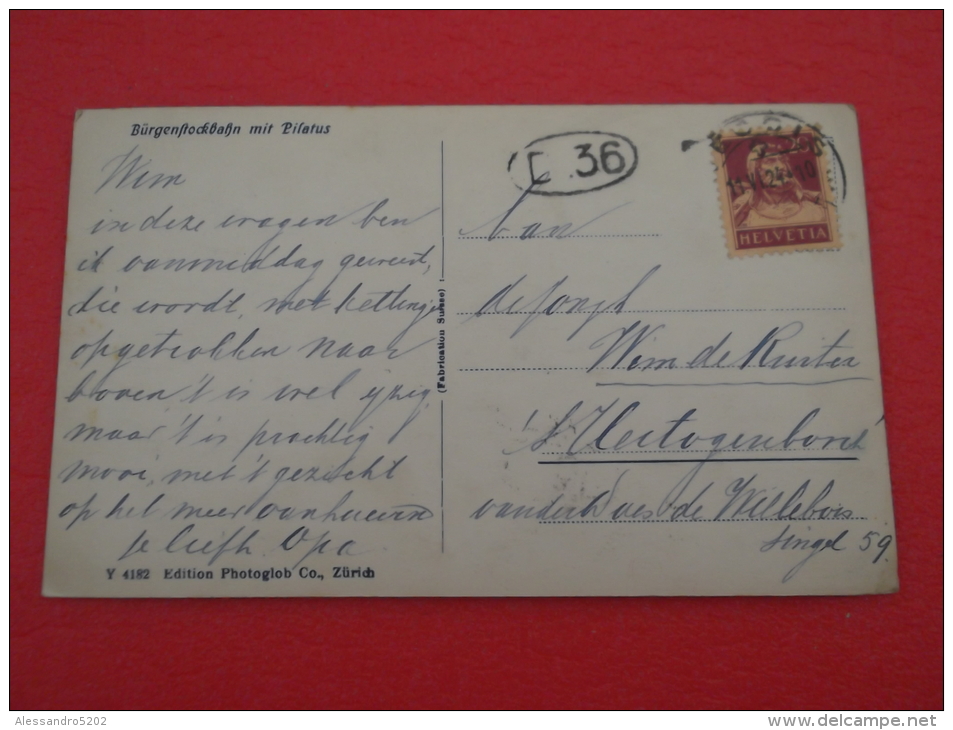 Bürgenstockbahn mit Pilatus
Wim
in deze wagen ben
ik vanmiddag geweest,
die wordt, met kettingen
opgetrokken naar
boven 't is wel ijzig
maar 't is prachtig
mooi, met 't gezicht
op het meer van
je liefh. Opa
Y 4182 Edition Photoglob Co., Zürich
(Fabrication Suisse)
36
11.VI.24
HELVETIA
Aan
de Jongh
Wim de Ruiter
's Hertogenbosch
van der Does de Willebois
singel 59.
Alessandro5202
www.delcampe.net